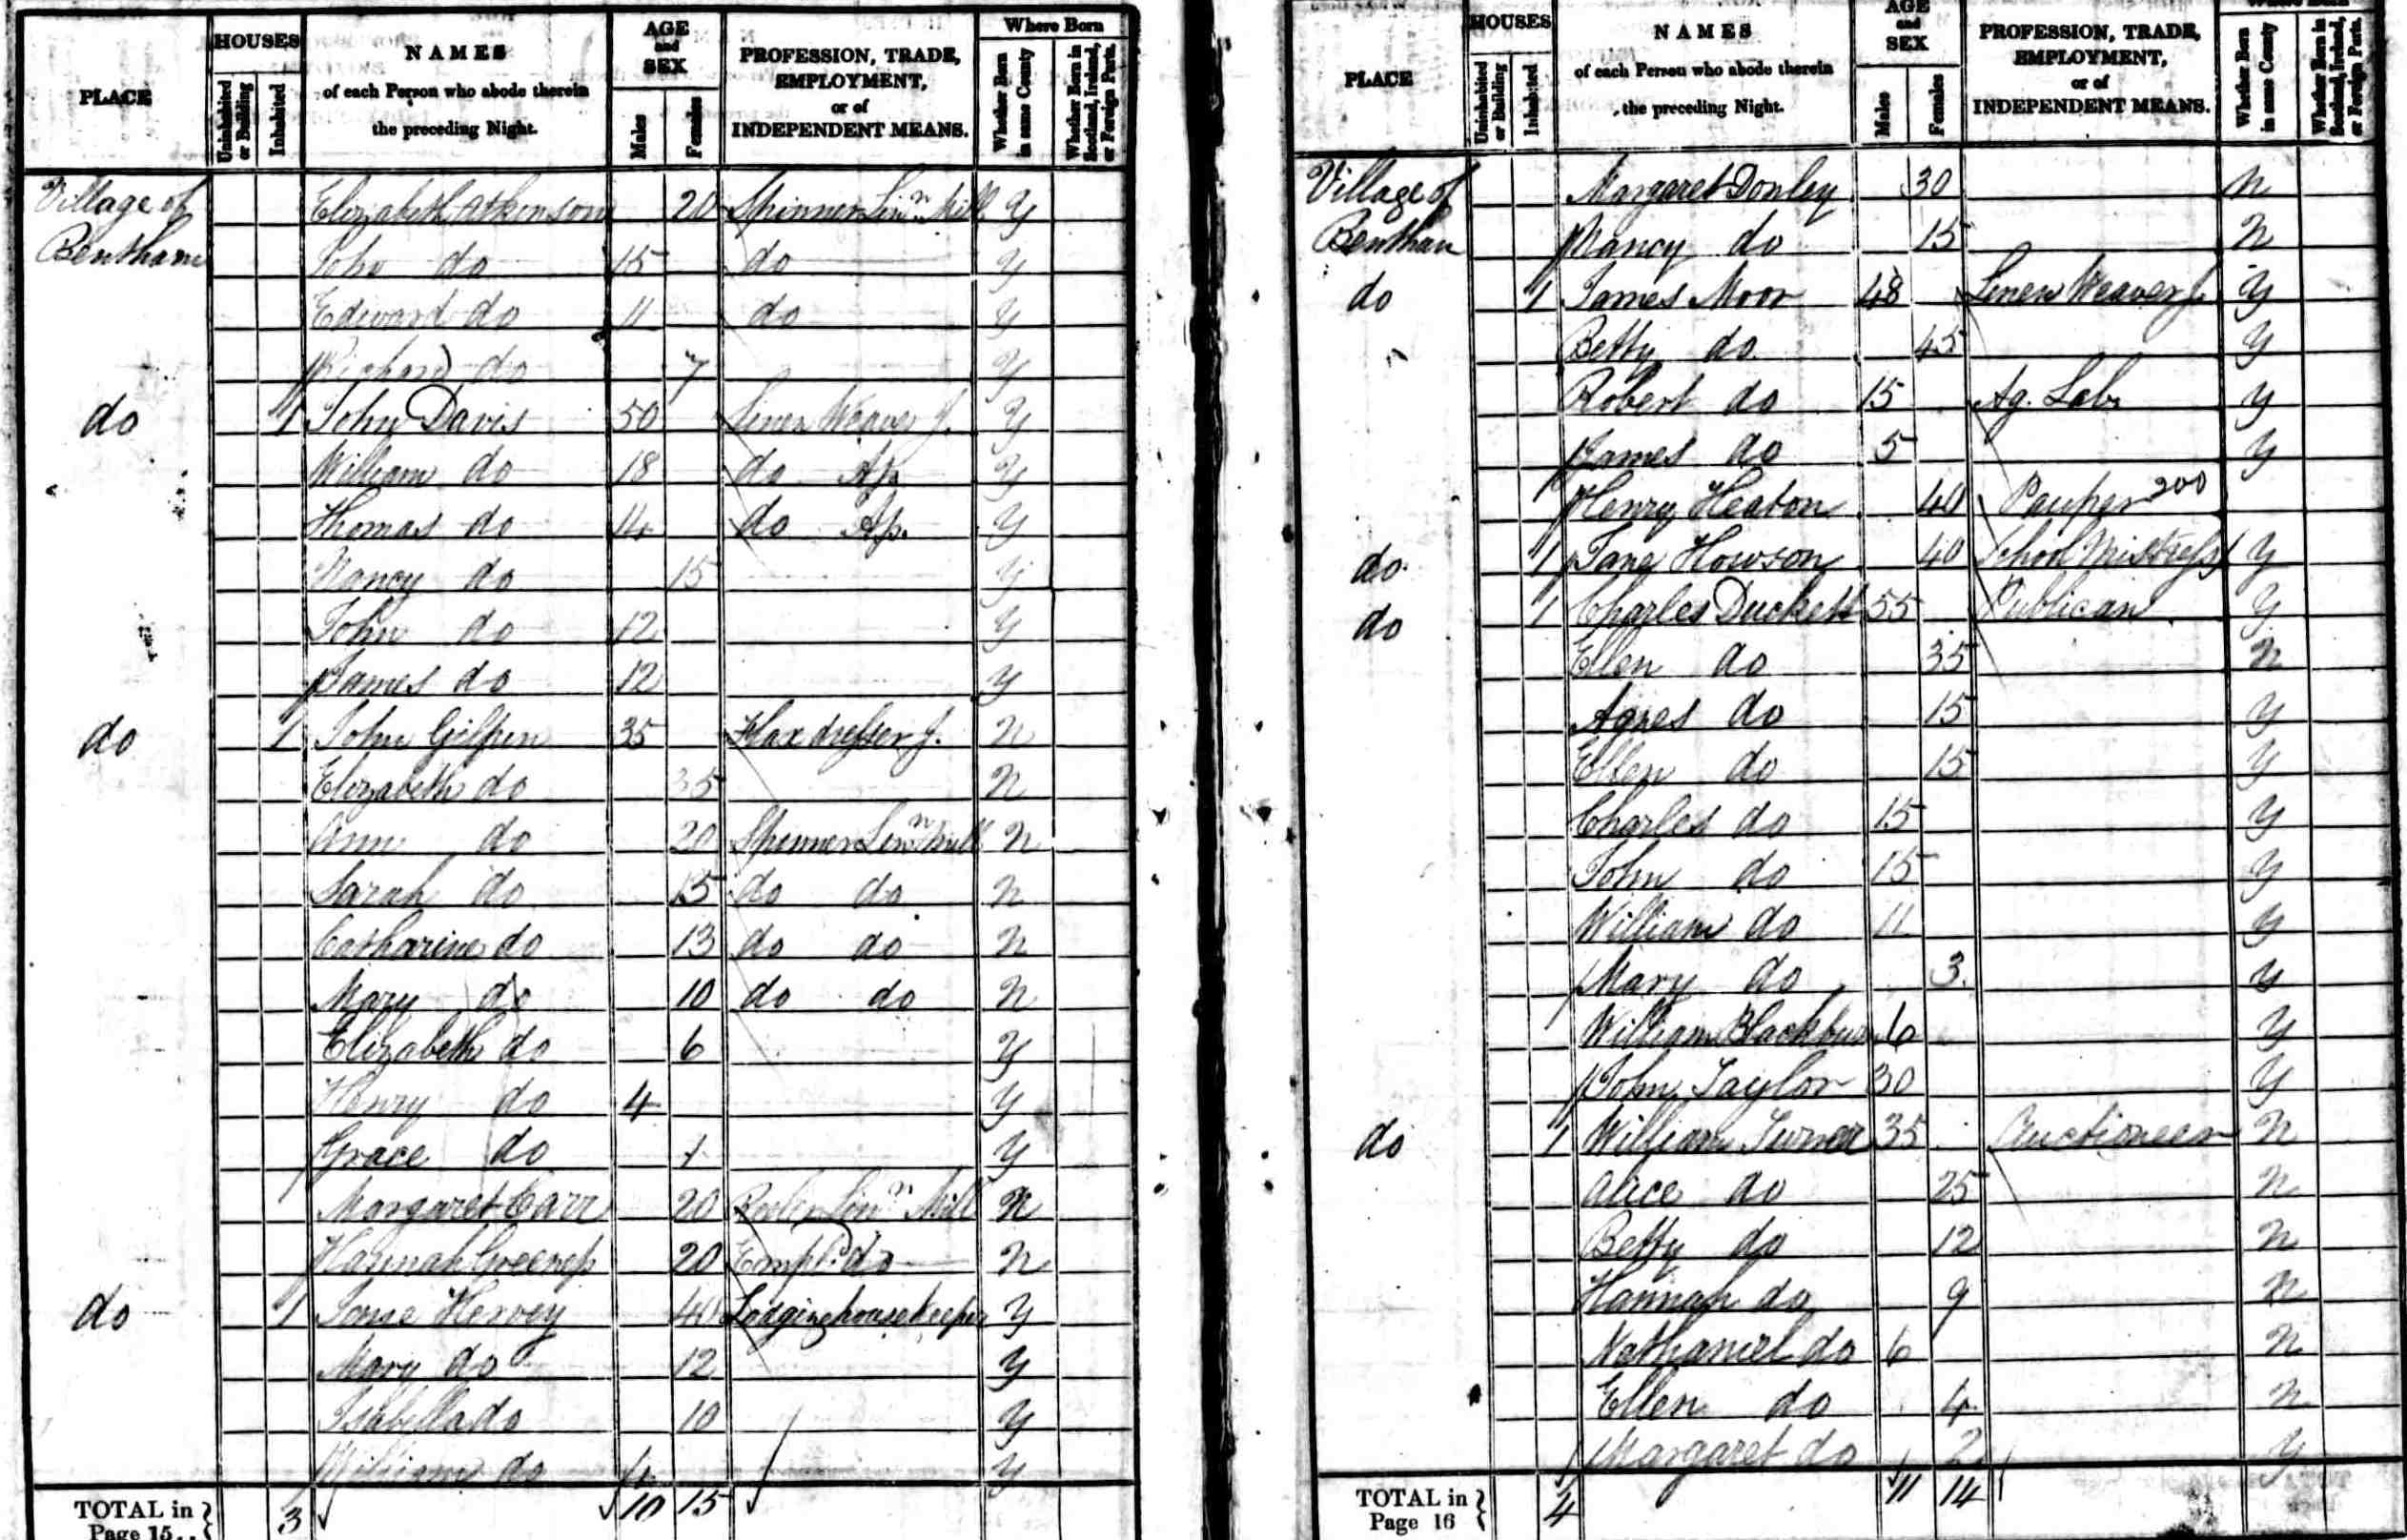 PLACE HOUSES Uninhabited or Building Inhabited NAMES of each Person who abode therein the preceding Night. AGE and SEX Males Females PROFESSION, TRADE, EMPLOYMENT, or of INDEPENDENT MEANS. Where Born Whether Born in same County Whether Born in Scotland, Ireland, or Foreign Parts.
Village of Elizabeth Atkinson 20 Spinner Linn Mill Y
Bentham John do 15 do Y
Edward do 11 do Y
Richard do 7 Y
do 1 John Davis 50 Linen Weaver J. Y
William do 18 do Ap. Y
Thomas do 14 do Ap. Y
Nancy do 15 Y
John do 12 Y
James do 12 Y
do 1 John Gilpin 35 Flax dresser J. N
Elizabeth do 35 N
Ann do 20 Spinner Linn Mill N
Sarah do 15 do do N
Catharine do 13 do do N
Mary do 10 do do N
Elizabeth do 6 Y
Henry do 4 Y
Grace do 1 Y
Margaret Carr 20 Reeler Linn Mill N
Hannah 20 Empd. do N
do 1 Jane Hervey 40 Lodginghousekeeper Y
Mary do 12 Y
Isabella do 10 Y
William do Y
TOTAL in Page 15.. 3 10 15
PLACE HOUSES Uninhabited or Building Inhabited NAMES of each Person who abode therein the preceding Night. AGE and SEX Males Females PROFESSION, TRADE, EMPLOYMENT, or of INDEPENDENT MEANS. Where Born Whether Born in same County Whether Born in Scotland, Ireland, or Foreign Parts.
Village of Margaret Donley 30 N
Bentham Nancy do 15 N
do 1 James Moor 48 Linen Weaver J. Y
Betty do 45 Y
Robert do 15 Ag. Lab. Y
James do 5 Y
Henry Heaton 40 Pauper 200
do 1 Jane Howson 40 School Mistress Y
do 1 Charles Duckett 55 Publican Y
Ellen do 35 N
Agnes do 15 Y
Ellen do 15 Y
Charles do 15 Y
John do 15 Y
William do 11 Y
Mary do 3 Y
William Blackburn 6 Y
John Taylor 30 Y
do 1 William Turner 35 Auctioneer N
Alice do 25 N
Betty do 12 N
Hannah do 9 N
Nathaniel do 6 N
Ellen do 4 N
Margaret do 2 Y
TOTAL in Page 16 4 11 14